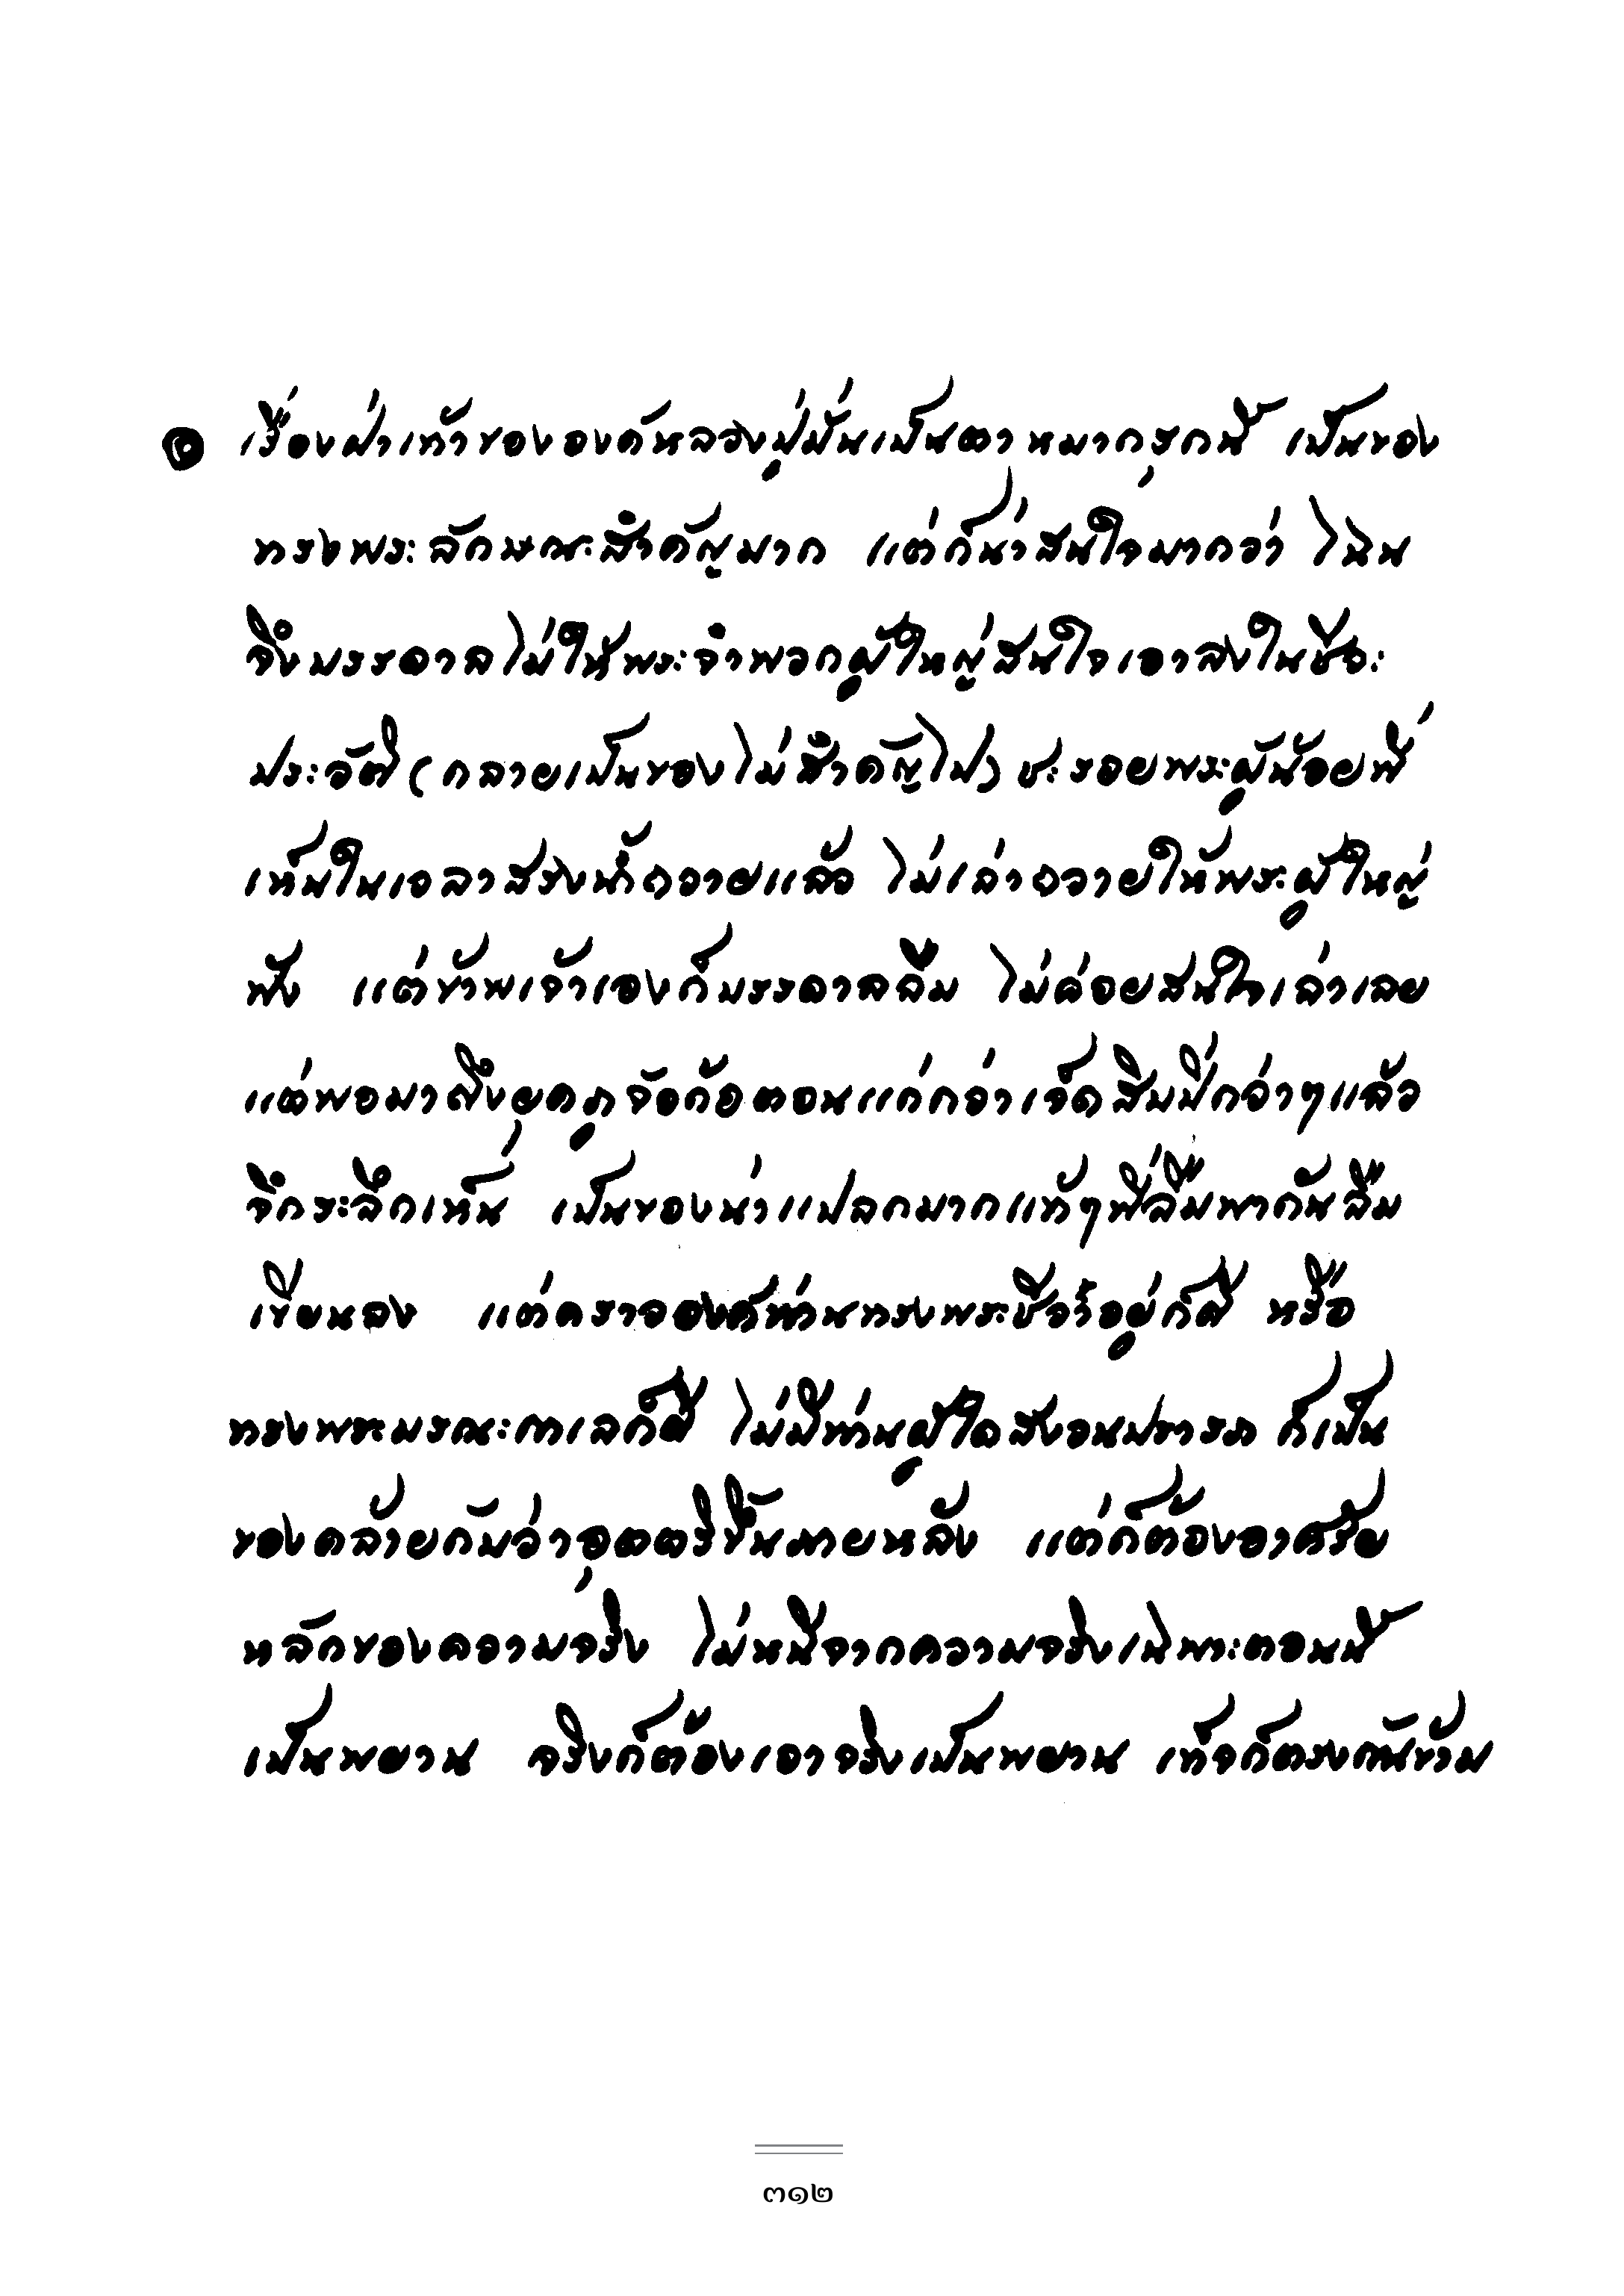 ๏ เรื่องฝ่าเท้าขององค์หลวงปู่มั่นเป็นตาหมากรุกนี้ เป็นของ
ทรงพระลักษณะสำคัญมาก แต่ก็น่าสนใจมากว่า ไฉน
จึงบรรดาลไม่ให้พระจำพวกผู้ใหญ่สนใจเอาลงในชีวะ
ประวัติ (กลายเป็นของไม่สำคัญไป) ชะรอยพระผู้น้อยที่
เห็นในเวลาสรงน้ำถวายแล้ว ไม่เล่าถวายให้พระผู้ใหญ่
ฟัง แต่ข้าพเจ้าเองก็บรรดาลลืม ไม่ค่อยสนใจเล่าเลย
แต่พอมาถึงยุคภูจ้อก้อตอนแก่กว่าเจ็ดสิบปีกว่าๆแล้ว
จึกระลึกเห็น เป็นของน่าแปลกมากแท้ๆที่ลืมพากันลืม
เขียนลง แต่คราวองค์ท่านทรงพระชีวีอยู่ก็ดี หรือ
ทรงพระมรณะกาเลก็ดี ไม่มีท่านผู้ใดสงวนปรารภ ก็เป็น
ของคล้ายกับว่าอุตตริขึ้นภายหลัง แต่ก็ต้องอาศรัย
หลักของความจริง ไม่หนีจากความจริงเฉพาะตอนนี้
เป็นพยาน จริงก็ต้องเอาจริงเป็นพยาน เท็จก็ตรงกันข้าม
๓๑๒